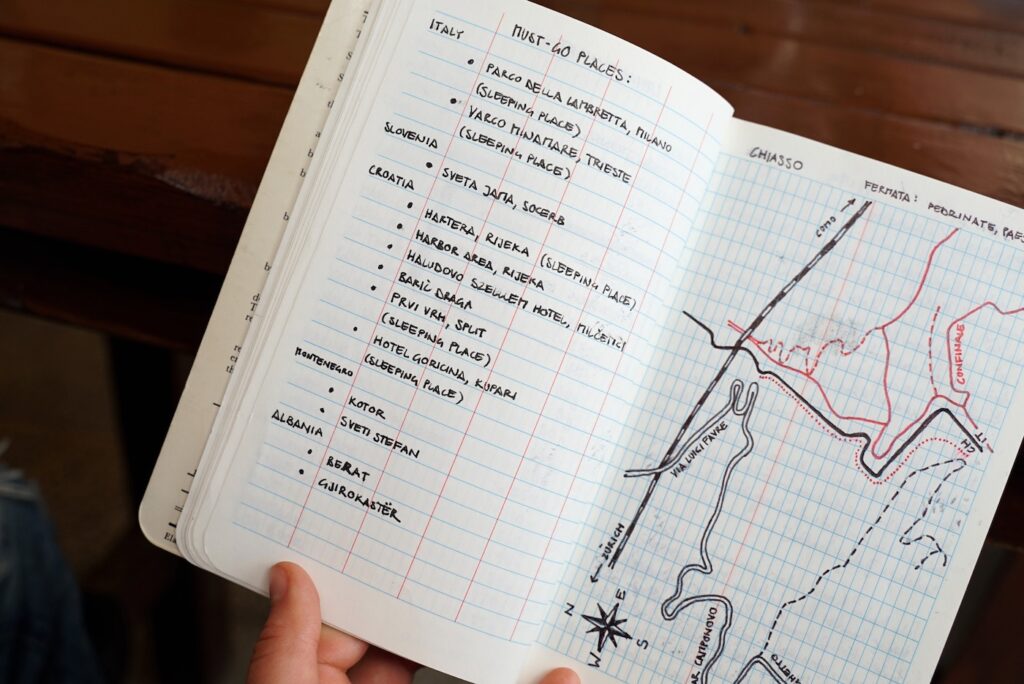 MUST-GO PLACES:
ITALY
• PARCO DELLA LAMBRETTA, MILANO
(SLEEPING PLACE)
• VARCO MINAMARE, TRIESTE
(SLEEPING PLACE)
SLOVENIA
• SVETA JAMA, SOCERB
CROATIA
• HARTERA, RIJEKA (SLEEPING PLACE)
• HARBOR AREA, RIJEKA
• HALUDOVO SZELLEM HOTEL, MILČETIĆI
• BARIĆ DRAGA
• PRVI VRH, SPLIT
(SLEEPING PLACE)
• HOTEL GORICINA, KUPARI
(SLEEPING PLACE)
MONTENEGRO
• KOTOR
• SVETI STEFAN
ALBANIA
• BERAT
• GJIROKASTËR
CHIASSO
FERMATA: PEDRINATE,
COMO
CONFINALE
IT
CH
VIA LUIGI FAVRE
ZÜRICH
N
E
S
W